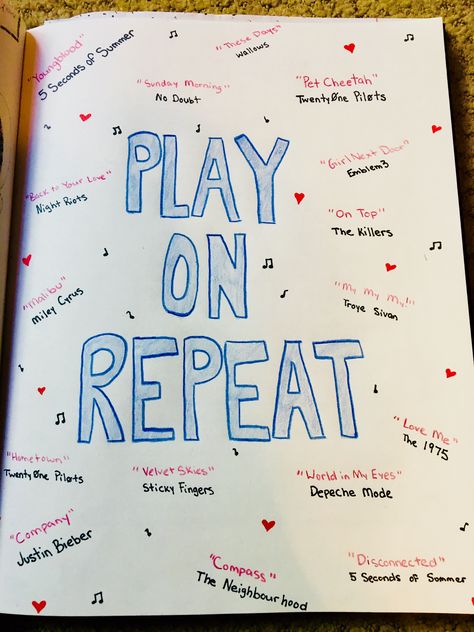 "Youngblood"
5 Seconds of Summer
"These Days"
wallows
"Sunday Morning"
No Doubt
"Pet Cheetah"
TwentyØne Piløts
"Girl Next Door"
Emblem3
"Back to Your Love"
Night Riots
PLAY
ON
REPEAT
"On Top"
The Killers
"Malibu"
Miley Cyrus
"My My My!"
Troye Sivan
"Love Me"
The 1975
"Hometown"
TwentyØne Piløts
"Velvet Skies"
Sticky Fingers
"World in My Eyes"
Depeche Mode
"Company"
Justin Bieber
"Compass"
The Neighbourhood
"Disconnected"
5 Seconds of Summer